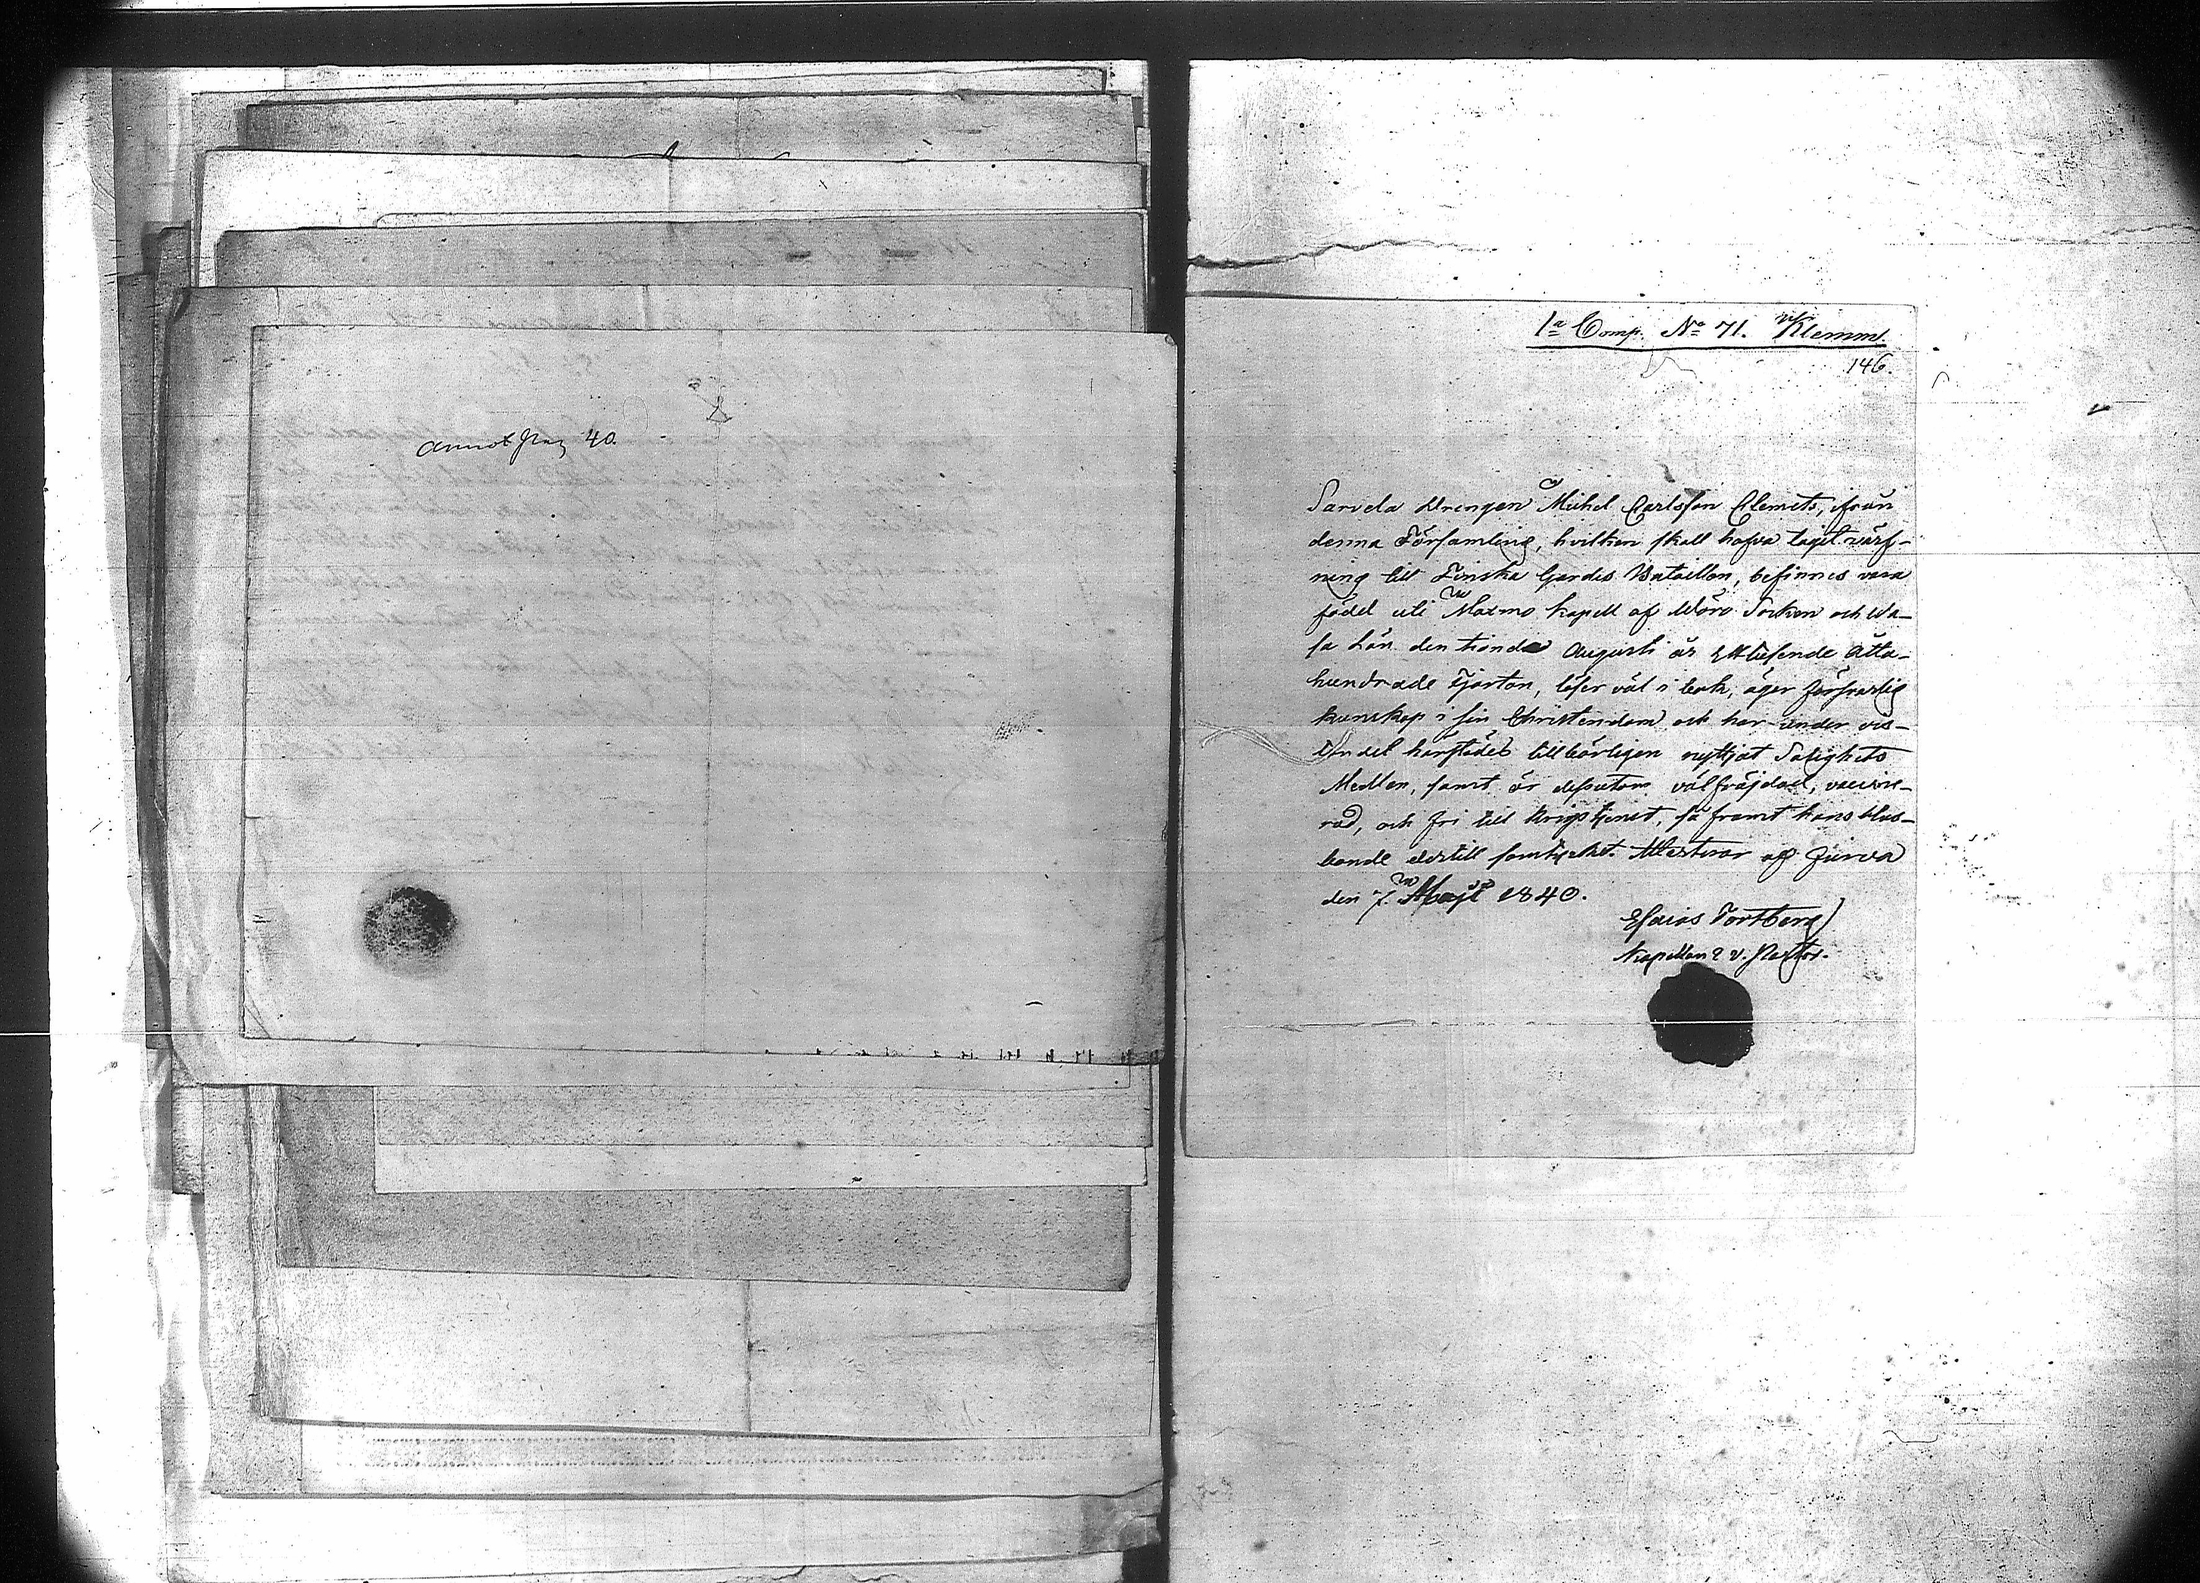 annot pag 40.
1a Comp. No 71. Klemm.
146.
Sarvela Drengen Michel Carlsson Clemets, från
denna Församling, hvilken skall hafva tagit värf-
ning till Finska Gardes Bataillon, befinnes vara
född uti Maxmo Kapell af Wörå Socken och Wa-
sa Län den tionde Augusti år Ett tusende Åtta-
hundrade Fjorton, läser väl i bok, äger försvarlig
kunskap i sin Christendom och har under vis-
tandet härstädes tillbörligen nyttjat Salighets
Medlen, samt är dessutom välfräjdad, vaccine-
rad, och fri till Krigstjenst, så framt hans Hus-
bonde dertill samtycket. Attesterar af Jurva
den 7. Maji 1840.
Esaias Tortberg
Kapellan v. Pastor.